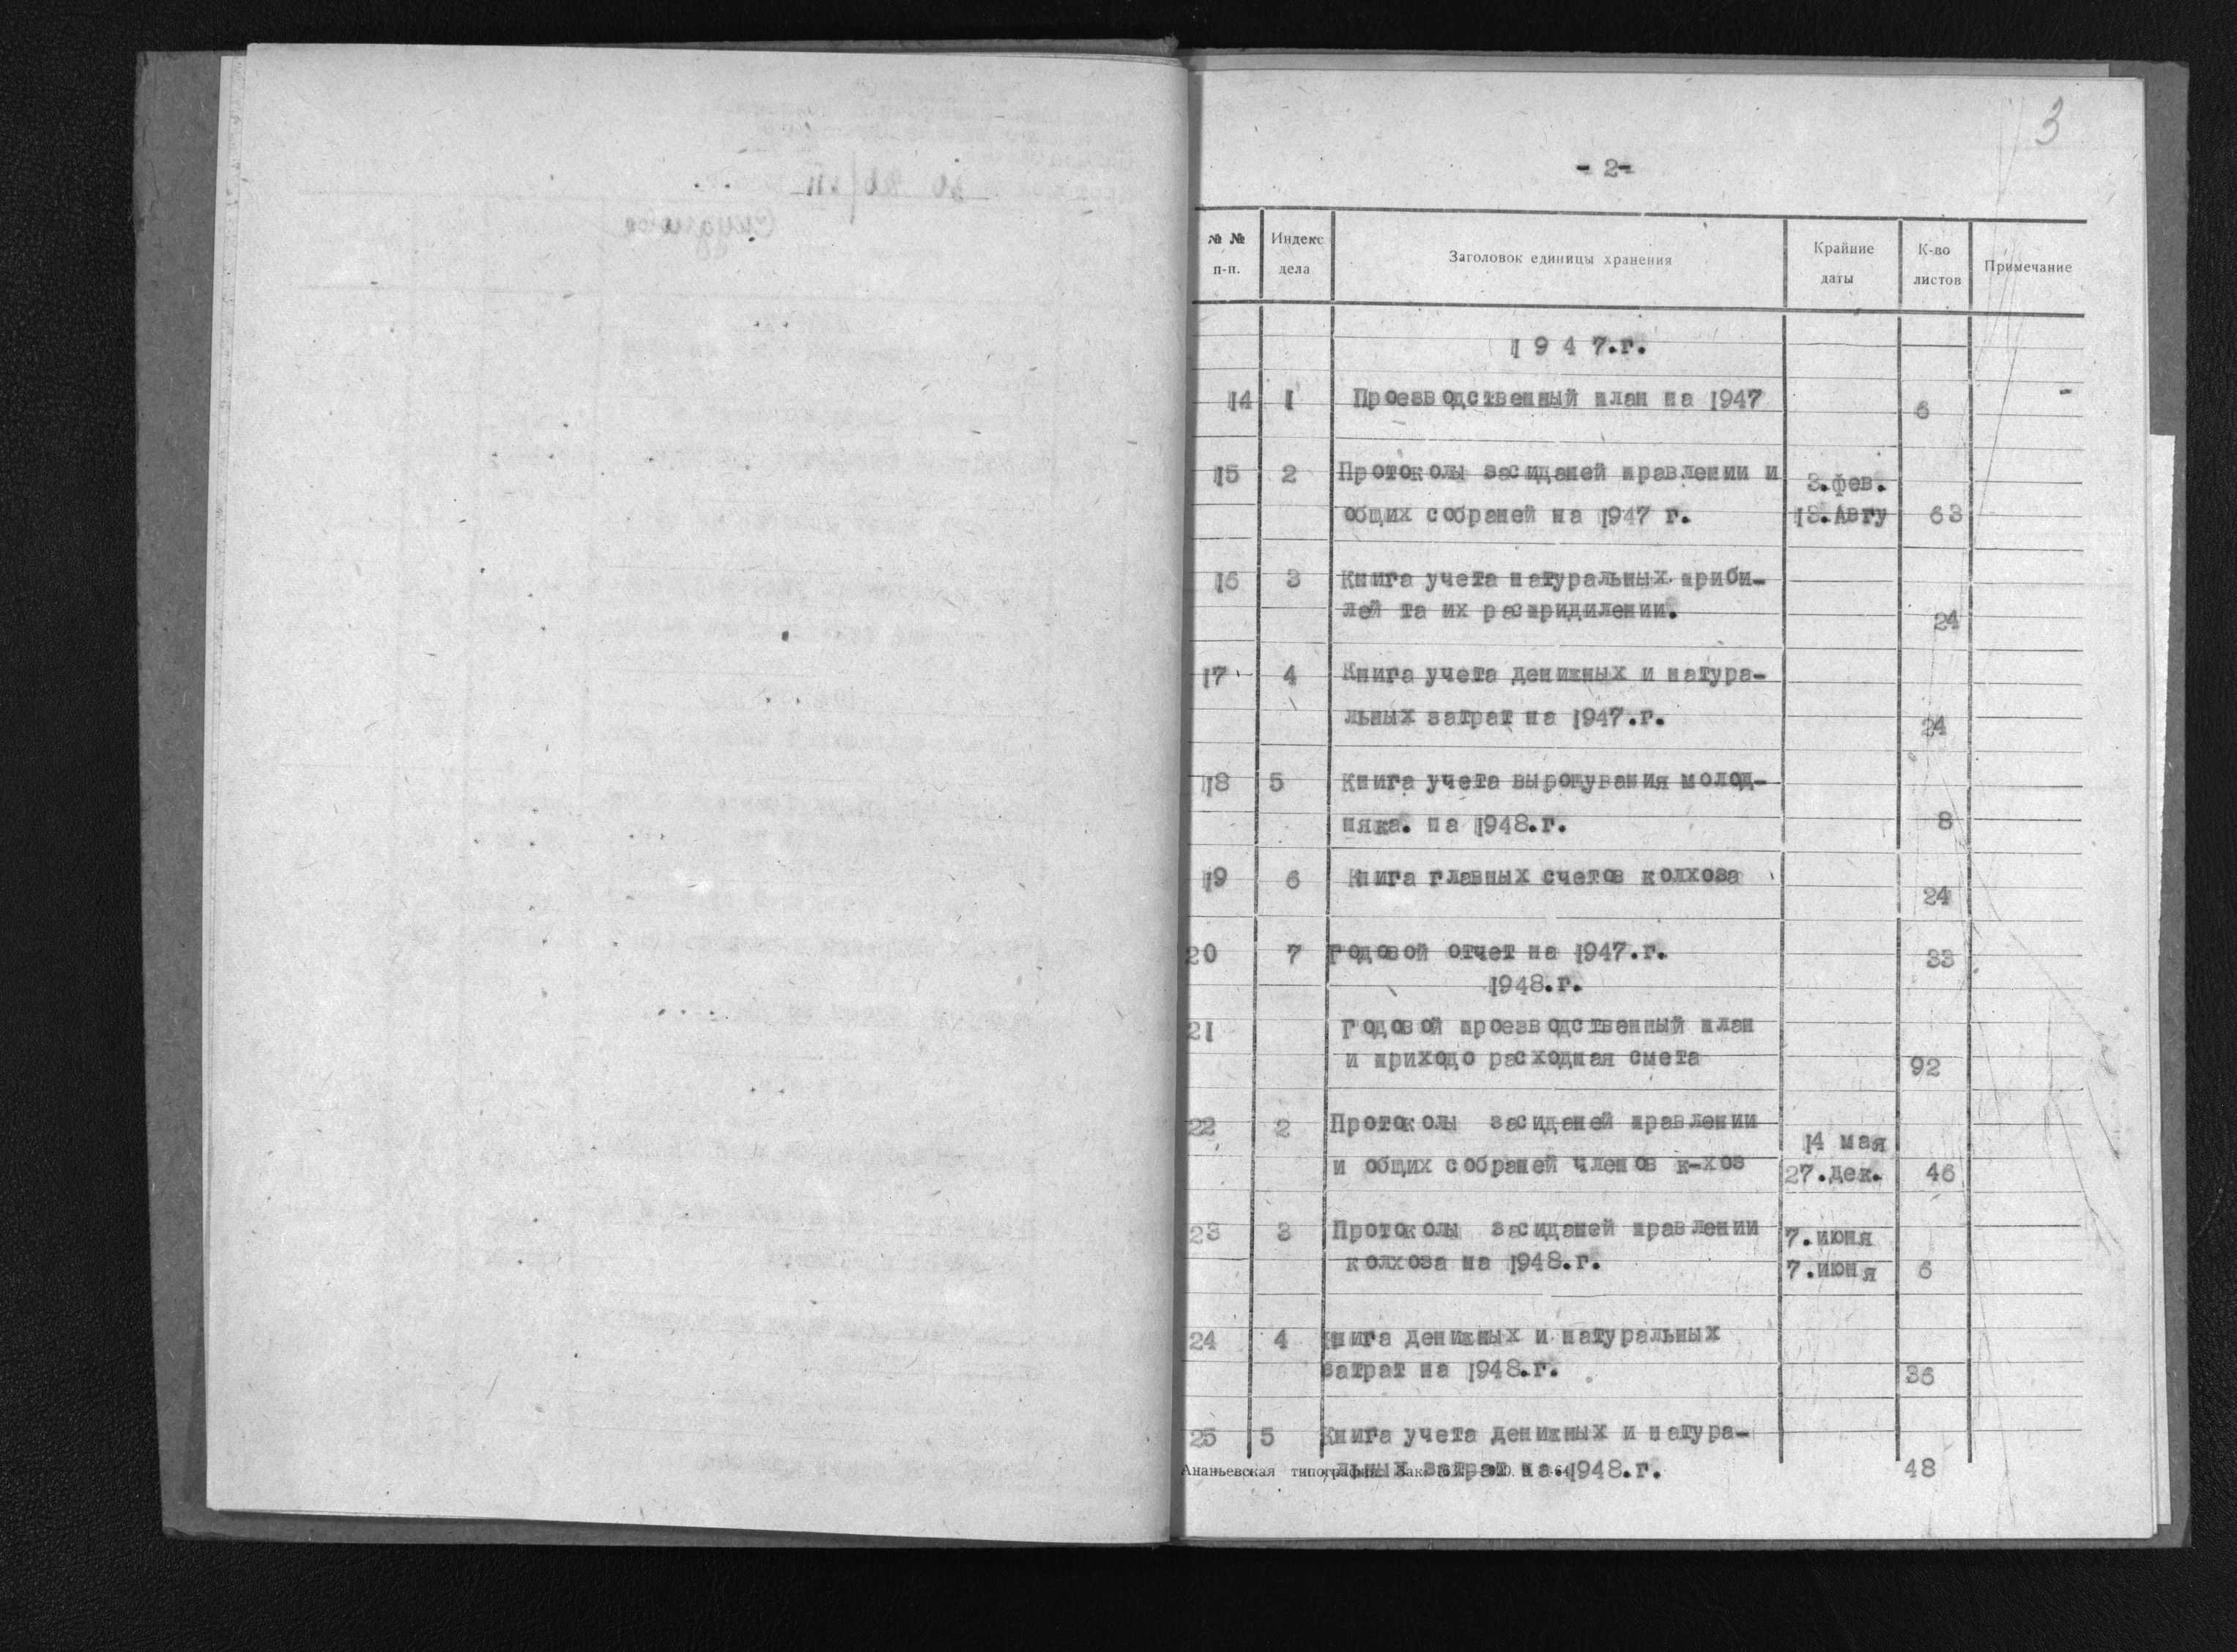 3
- 2-
№ № п-п. Индекс дела Заголовок единицы хранения Крайние даты К-во листов Примечание
1 9 4 7.г.
14 1 Проезводственный план на 1947 6
15 2 Протоколы засиданей правлении и 3.фев.
общих собраней на 1947 г. 13.Авгу 63
16 3 Книга учета натуральных приби-
лей та их распридилении. 24
17 4 Книга учета денижных и натура-
льных затрат на 1947.г. 24
18 5 Книга учета вырощувания молод-
няка. на 1948.г. 8
19 6 Книга главных счетов колхоза 24
20 7 Годовой отчет на 1947.г. 33
1948.г.
21 Годовой проезводственный план
и приходо расходная смета 92
22 2 Протоколы засиданей правлении 14 мая
и общих собраней членов к-хоз 27.дек. 46
23 3 Протоколы засиданей правлении 7.июня
колхоза на 1948.г. 7.июня 6
24 4 Книга денижных и натуральных
затрат на 1948.г. 36
25 5 Книга учета денижных и натура-
льных затрат на 1948.г. 48
Ананьевская типография